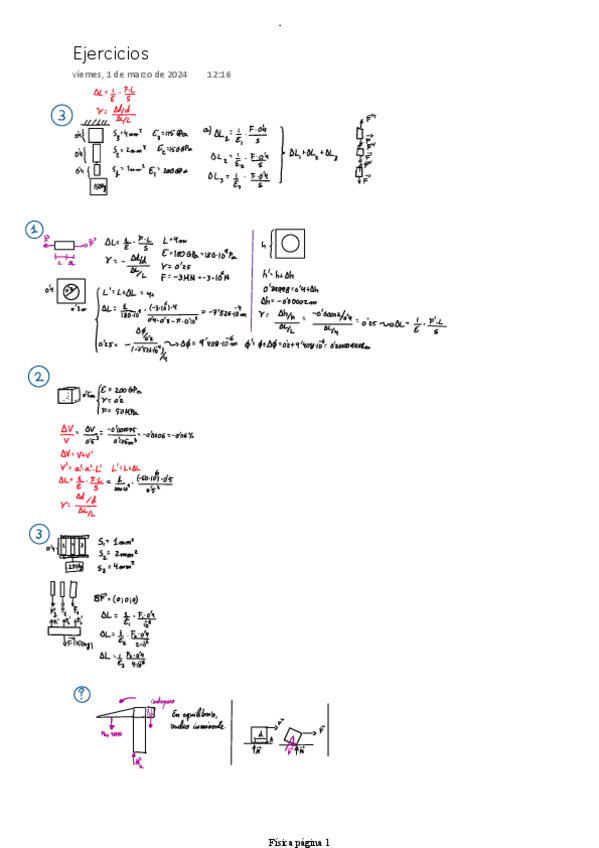 Ejercicios
viernes, 1 de marzo de 2024 12:16
ΔL = 1/E · F·L/S
γ = Δd/d / ΔL/L
3
0'4 S₃ = 4mm² E₃ = 115 GPa
0'4 S₂ = 2mm² E₂ = 150 GPa
0'4 S₁ = 1mm² E₁ = 200 GPa
150kg
a) ΔL₁ = 1/E₁ · F·0'4/S
ΔL₂ = 1/E₂ · F·0'4/S
ΔL₃ = 1/E₃ · F·0'4/S
ΔL₁+ΔL₂+ΔL₃
1
ΔL = 1/E · F·L/S L = 4m
E = 180 GPa = 180·10⁹ Pa
γ = - Δd/d / ΔL/L
γ = 0'25
F = -3MN = -3·10⁶ N
0'4
L' = L+ΔL = 4
ΔL = 1/180·10⁹ · (-3·10⁶)·4 / = -7'526·10⁻⁴ m
0'25 = - Δφ/0'2 / (-7'526·10⁻⁴)/4 ⇝ Δφ = 9'408·10⁻⁶ m
h
h' = h+Δh
0'39998 = 0'4+Δh
Δh = -0'00002m
γ = Δh/h / ΔL/L = -0'00002/0'4 / ΔL/L = 0'25 ⇝ ΔL = 1/E · F·L/S
2
0'5m
E = 200 GPa
γ = 0'2
F = 50 MPa
ΔV/V = ΔV/0'5³ = -0'000075/0'125m³ = -0'0006 = -0'06%
ΔV = V+V'
V' = a'·a'·L' L' = L+ΔL
ΔL = 1/E · F·L/S = 1/200·10⁹ · (-50·10⁶)·0'5/0'5²
γ = Δd/d / ΔL/L
3
0'4
250kg
S₁ = 1mm²
S₂ = 2mm²
S₃ = 4mm²
ΣF = (0;0;0)
ΔL = 1/E₁ · F₁·0'4/10⁻⁶
ΔL = 1/E₂ · F₂·0'4/2·10⁻⁶
ΔL = 1/E₃ · F₃·0'4/4·10⁻⁶
?
Contrapeso
En equilibrio,
vuelco inminente
Física página 1